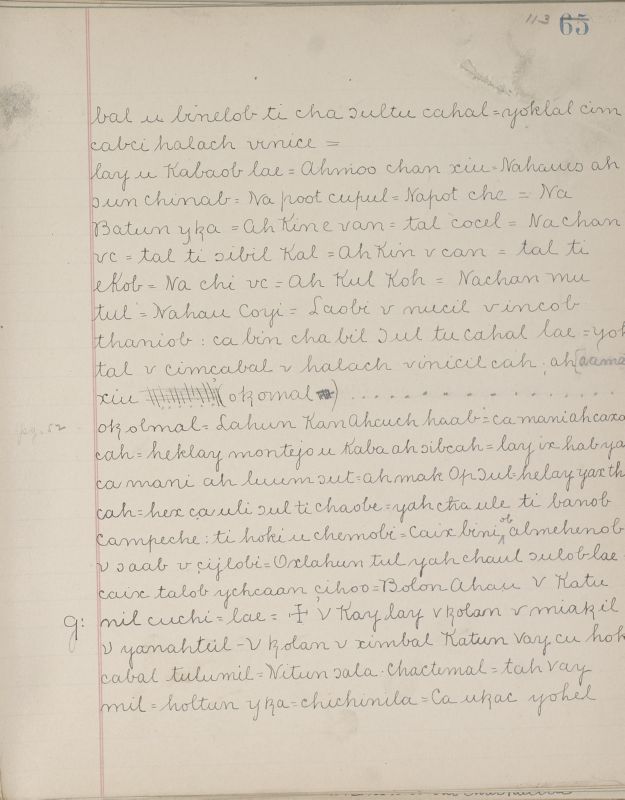 113 65
bal u binelob ti cha ɔultu cahal = yoklal cim
cabci halach vinice =
lay u Kabaob lae = Ahmoo chan xiu = Nahaues ah
ɔun chinab = Na poot cupul = Napot che = Na
Batun yꝁa = Ah Kin e van = tal cocel = Nachan
vc = tal ti ɔibil Kal = Ah Kin v can = tal ti
ekob = Na chi vc = Ah Kul Koh = Nachan mu
tul = Nahau Coyi = Laobi v nucil v incob
thaniob : ca bin cha bil ɔul tu cahal lae = yok
tal v cimcabal v halach vinicil cah, ah
xiu (oꝁomal )
oꝁolmal = Lahun Kan Ahcuch haab = ca mani ahcaxa
cah = heklay montejo u Kaba ah ɔibcah = lay ix hab ya
ca mani ah luum ɔut = ah mak Op ɔul = helay yax th
cah = hex ca uli ɔul ti chaobe = yah cħa ule ti banob
Campeche : ti hoki u chemobi = Caix bini ob almehenob
v ɔaab v çijlobi = Oxlahun tul yah chaul ɔulob lae
caix talob ychcaan çihoo = Bolon Ahau V Katu
g: nil cuchi = lae = ☩ V Kay lay v ꝁolan v miaꝁil
v yanahtul - V ꝁolan v ximbal Katun Vay cu hok
cabal tulumil = Nitun ɔala. Chactemal = tah vay
mil = holtun yꝁa = chichinila = Ca uꝁac yohel
pg. 52